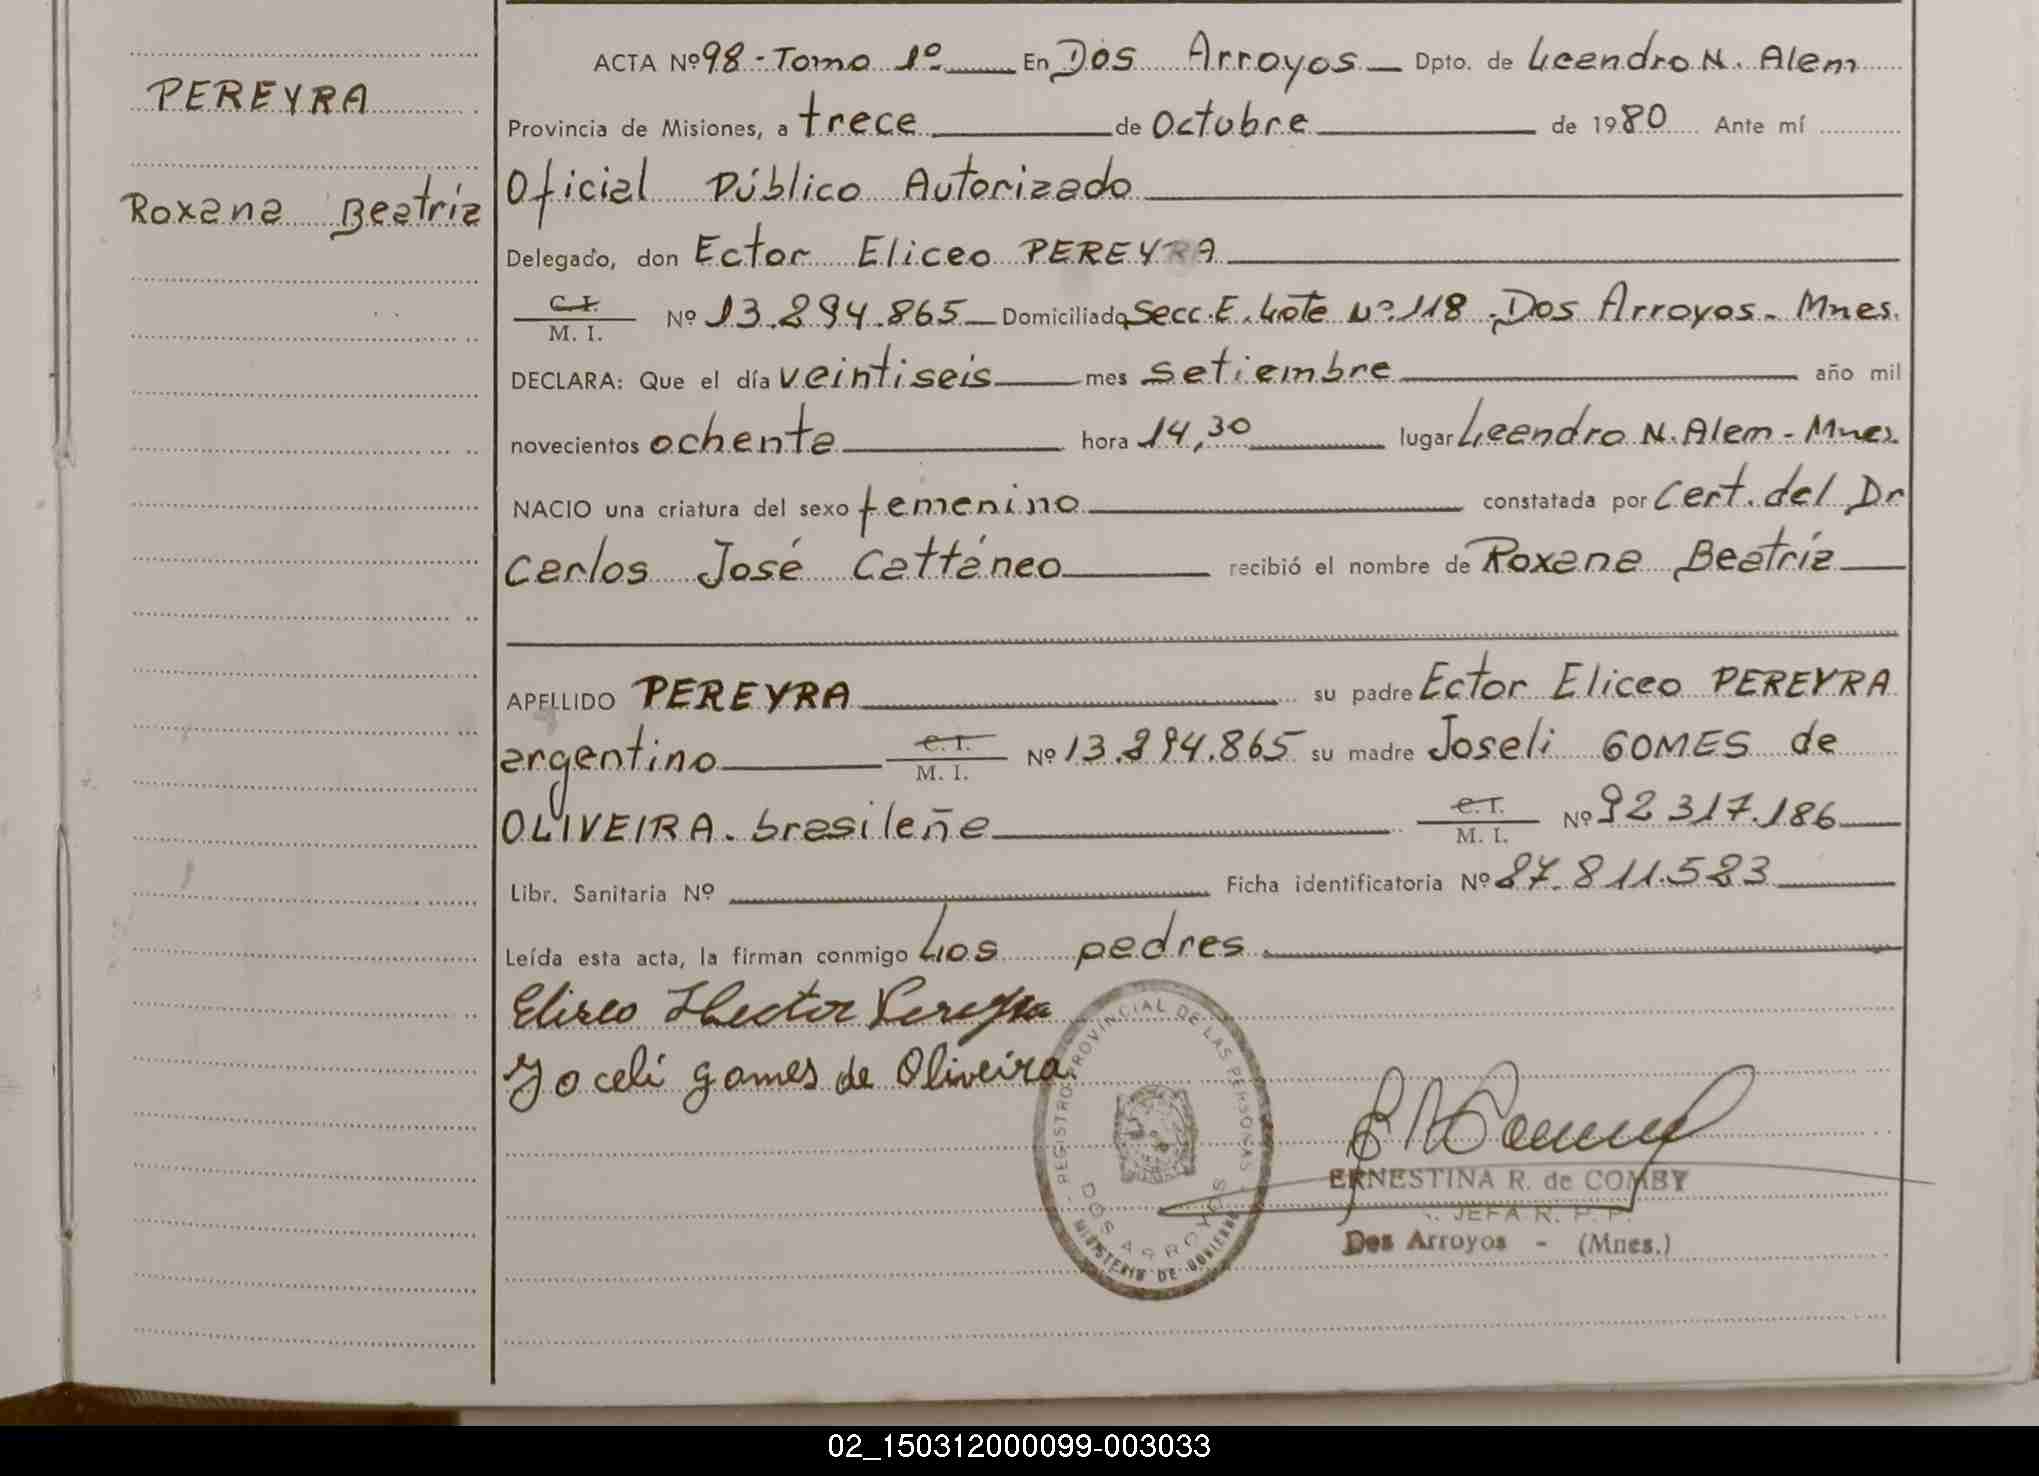 PEREYRA
Roxana Beatríz
ACTA Nº 98 - Tomo 1º En Dos Arroyos Dpto. de Leandro N. Alem
Provincia de Misiones, a trece de Octubre de 1980 Ante mí
Oficial Público Autorizado
Delegado, don Ector Eliceo PEREYRA
C. I.
M. I. Nº 13.294.865 Domiciliado Secc. E. Lote Nº 118 - Dos Arroyos - Mnes.
DECLARA: Que el día veintiseis mes setiembre año mil
novecientos ochenta hora 14,30 lugar Leandro N. Alem - Mnes.
NACIO una criatura del sexo femenino constatada por Cert. del Dr
Carlos José Cattáneo recibió el nombre de Roxana Beatríz
APELLIDO PEREYRA su padre Ector Eliceo PEREYRA
argentino C. I.
M. I. Nº 13.294.865 su madre Joseli GOMES de
OLIVEIRA. brasileña C. I.
M. I. Nº 92 317.186
Libr. Sanitaria Nº Ficha identificatoria Nº 27.811.523
Leída esta acta, la firman conmigo Los padres
Eliseo Hector Pereyra
Joceli gomes de Oliveira.
REGISTRO PROVINCIAL DE LAS PERSONAS
DOS ARROYOS
MINISTERIO DE GOBIERNO
ERNESTINA R. de COMBY
JEFA R. P. P.
Dos Arroyos - (Mnes.)
02_150312000099-003033